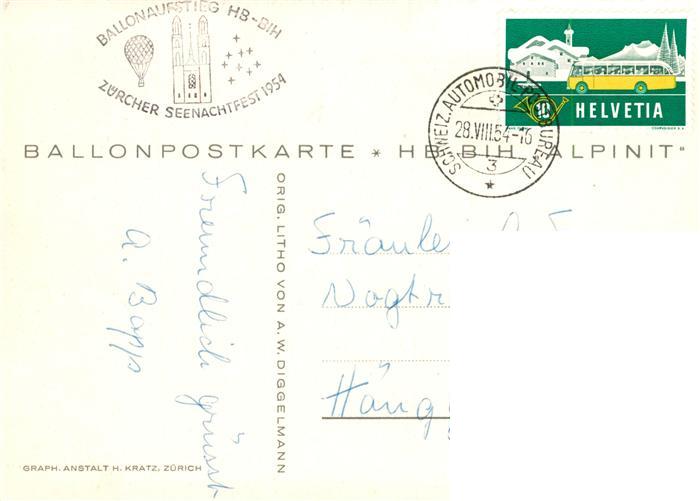 BALLONAUFSTIEG HB-BIH
ZÜRCHER SEENACHTFEST 1954
10 HELVETIA
COURVOISIER S.A.
SCHWEIZ. AUTOMOBIL-POSTBUREAU
28.VIII.54-16
3
BALLONPOSTKARTE * HB-BIH "ALPINIT"
Freundlich grüsst
A. Bopp
ORIG. LITHO VON A. W. DIGGELMANN
Fräulein
Vogtr
Hängg
GRAPH. ANSTALT H. KRATZ, ZÜRICH